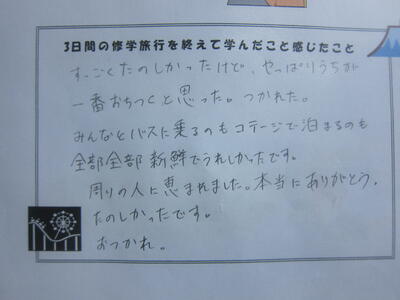 3日間の修学旅行を終えて学んだこと感じたこと
すっごくたのしかったけど、やっぱりうちが
一番おちつくと思った。つかれた。
みんなとバスに乗るのもコテージで泊まるのも
全部全部新鮮でうれしかったです。
周りの人に恵まれました。本当にありがとう。
たのしかったです。
おつかれ。